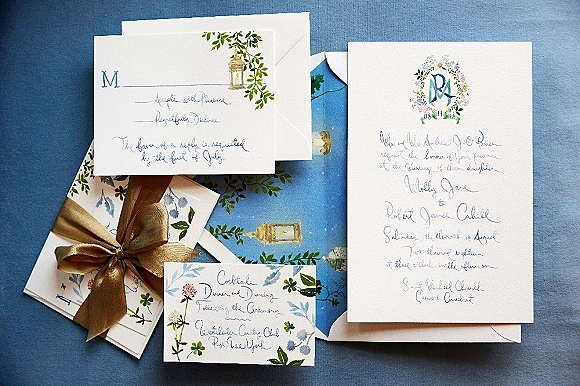 M
Accepts with Pleasure
Respectfully Declines
The favor of a reply is requested
by the first of July
Cocktails
Dinner and Dancing
Following the Ceremony
Westchester Country Club
Rye, New York
Mr. and Mrs. Andrew J. O'
request the honor of your presence
at the marriage of their daughter
Molly Jane
to
Robert James Cahill
Saturday, the eleventh of August
Two thousand eighteen
at three o'clock in the afternoon
Saint Michael Church
Connecticut